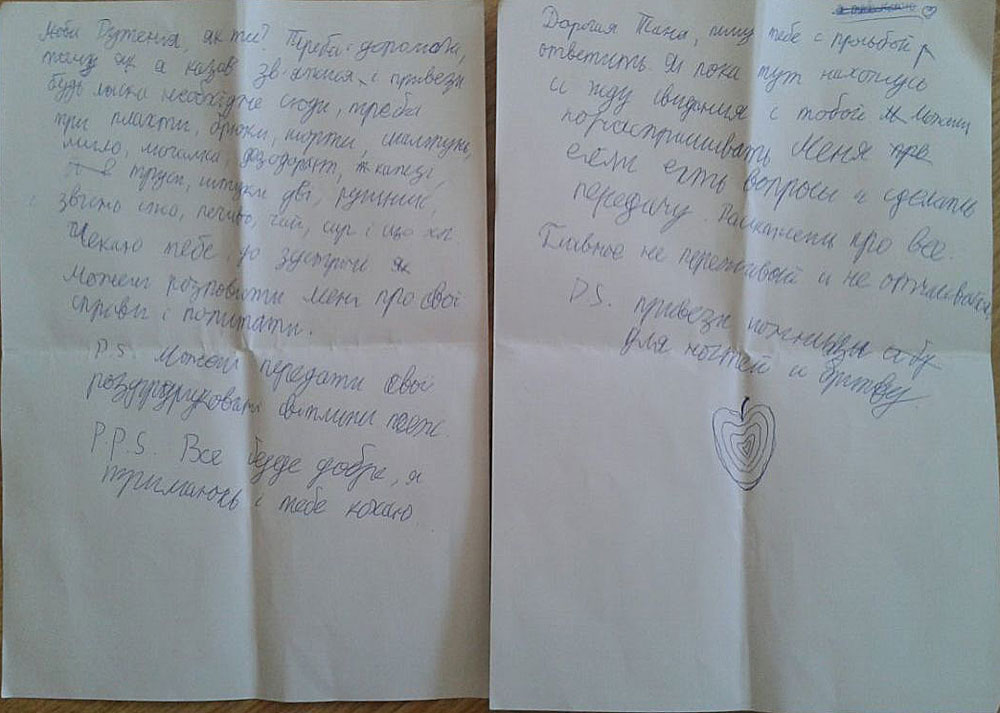 Люба Рутенія, як ти? Треба допомога,
тому як я казав зв'яжися і привези
будь ласка необхідне сюди, треба
три плахти, брюки, шорти, шампунь,
мило, мочалка, дезодорант, капці,
труси, штуки дві, рушник,
звісно їжа, печиво, чай, сир і що хоч.
Чекаю тебе, до зустрічі як
Можеш розповісти мені про свої
справи і попитати.
P.S. Можеш передати свої
роздруковані світлини теж.
P.P.S. Все буде добре, я
тримаюсь і тебе кохаю
Дорогая Тана, пишу тебе с просьбой
ответить. Я пока тут нахожусь
и жду свидания с тобой Можешь
пораспрашивать меня про
если есть вопросы и сделать
передачу. Расскажешь про все.
Главное не переживай и не отчаивайся,
P.S. привези ножницы
для ногтей и бритву.